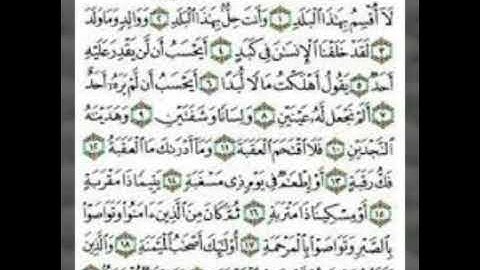 لَآ أُقْسِمُ بِهَٰذَا ٱلْبَلَدِ ١ وَأَنتَ حِلٌّۢ بِهَٰذَا ٱلْبَلَدِ ٢ وَوَالِدٍ وَمَا وَلَدَ
٣ لَقَدْ خَلَقْنَا ٱلْإِنسَٰنَ فِى كَبَدٍ ٤ أَيَحْسَبُ أَن لَّن يَقْدِرَ عَلَيْهِ
أَحَدٌ ٥ يَقُولُ أَهْلَكْتُ مَالًا لُّبَدًا ٦ أَيَحْسَبُ أَن لَّمْ يَرَهُۥٓ أَحَدٌ
٧ أَلَمْ نَجْعَل لَّهُۥ عَيْنَيْنِ ٨ وَلِسَانًا وَشَفَتَيْنِ ٩ وَهَدَيْنَٰهُ
ٱلنَّجْدَيْنِ ١٠ فَلَا ٱقْتَحَمَ ٱلْعَقَبَةَ ١١ وَمَآ أَدْرَىٰكَ مَا ٱلْعَقَبَةُ ١٢
فَكُّ رَقَبَةٍ ١٣ أَوْ إِطْعَٰمٌ فِى يَوْمٍ ذِى مَسْغَبَةٍ ١٤ يَتِيمًا ذَا مَقْرَبَةٍ
١٥ أَوْ مِسْكِينًا ذَا مَتْرَبَةٍ ١٦ ثُمَّ كَانَ مِنَ ٱلَّذِينَ ءَامَنُوا۟ وَتَوَاصَوْا۟
بِٱلصَّبْرِ وَتَوَاصَوْا۟ بِٱلْمَرْحَمَةِ ١٧ أُو۟لَٰٓئِكَ أَصْحَٰبُ ٱلْمَيْمَنَةِ ١٨ وَٱلَّذِينَ